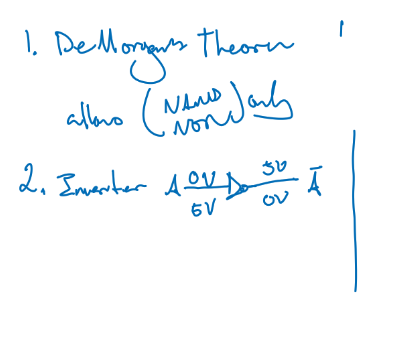 1. DeMorgan's Theorem
allows (NAND NOR) only
2. Inverter A 0V 5V 5V 0V Ā